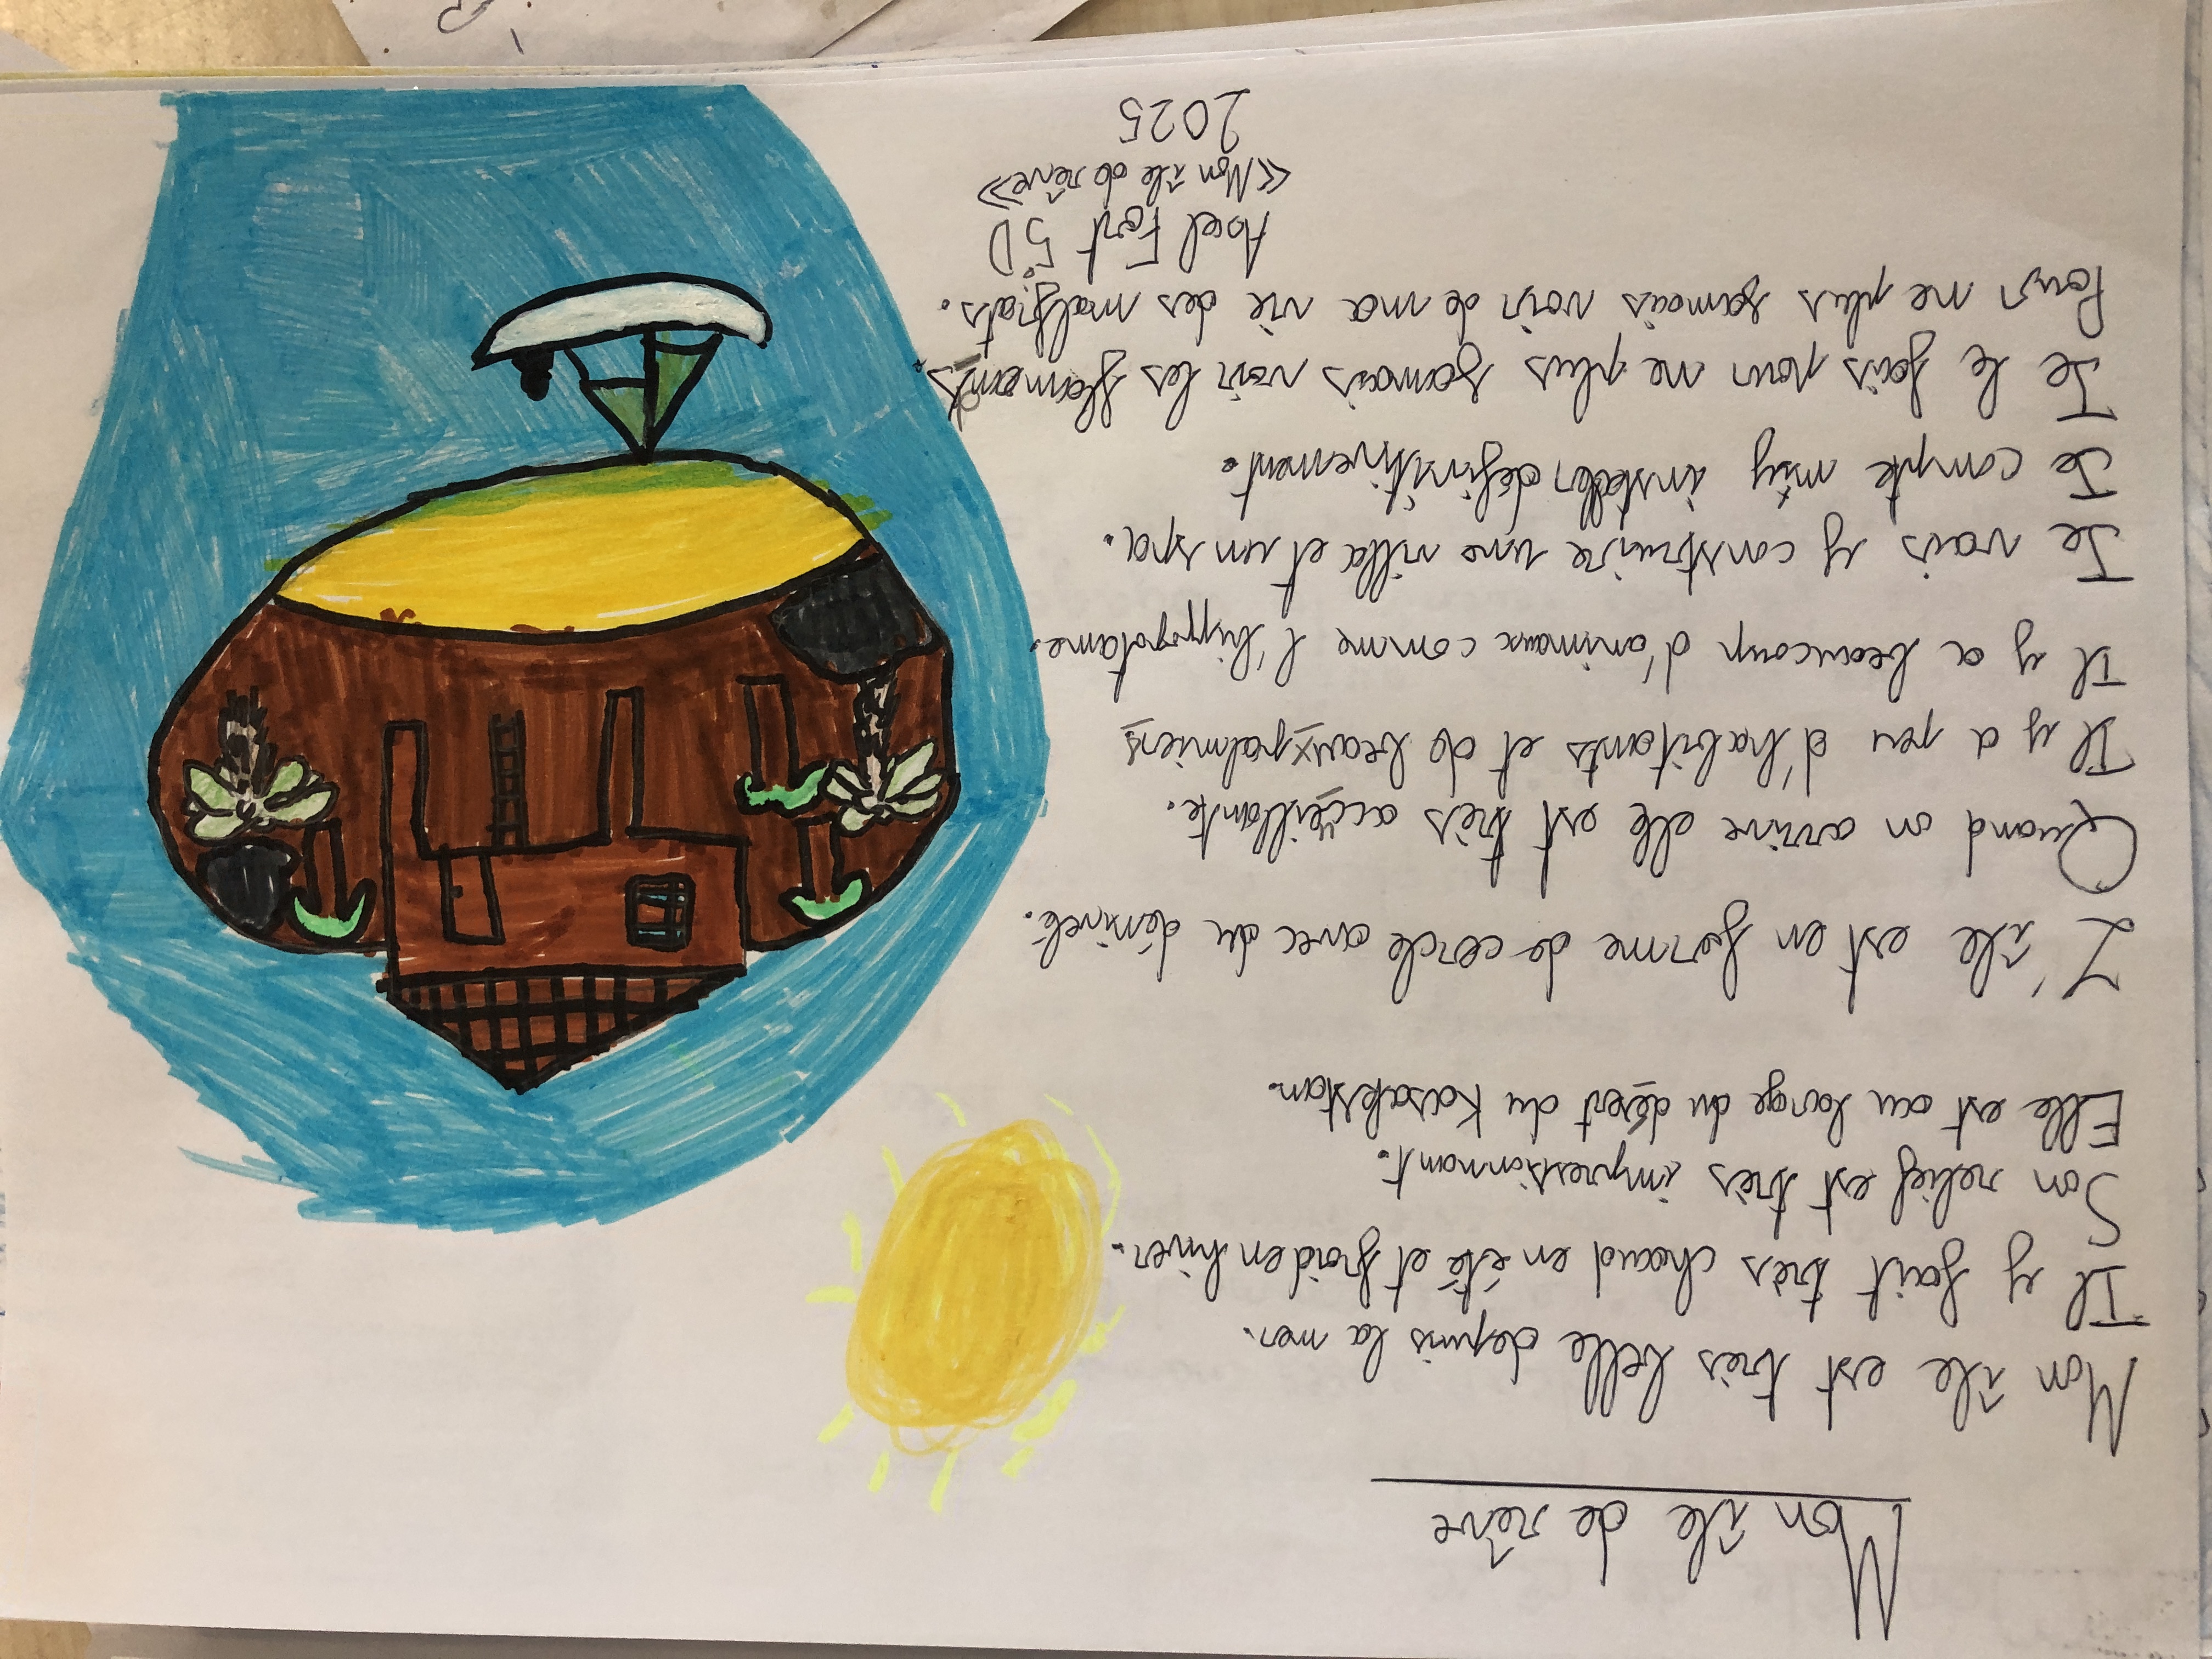 Mon île de rêve
Mon île est très belle depuis la mer.
Il y fait très chaud en été et froid en hiver.
Son relief est très impressionnant.
Elle est au large du désert du Kasakstan.
L'île est en forme de cercle avec du dénivelé.
Quand on arrive elle est très acceillante.
Il y a peu d'habitants et de beaux palmiers
Il y a beaucoup d'animaux comme l'hippopotame.
Je vais y construire une villa et un spa.
Je compte m'y installer définitivement.
Je le fais pour ne plus jamais voir les flamants.
Pour ne plus jamais voir de ma vie des malfrats.
Axel Fort 5°D
«Mon île de rêve»
2025